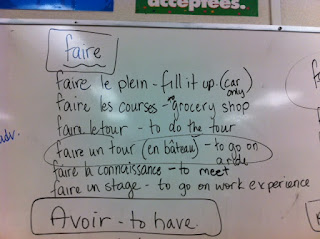 acceptées.
faire
faire le plein - fill it up. (car only)
faire les courses - grocery shop
faire le tour - to do the tour
faire un tour (en bâteau) - to go on a ride
faire la connaissance - to meet
faire un stage - to go on work experience
Avoir - to have
adv.